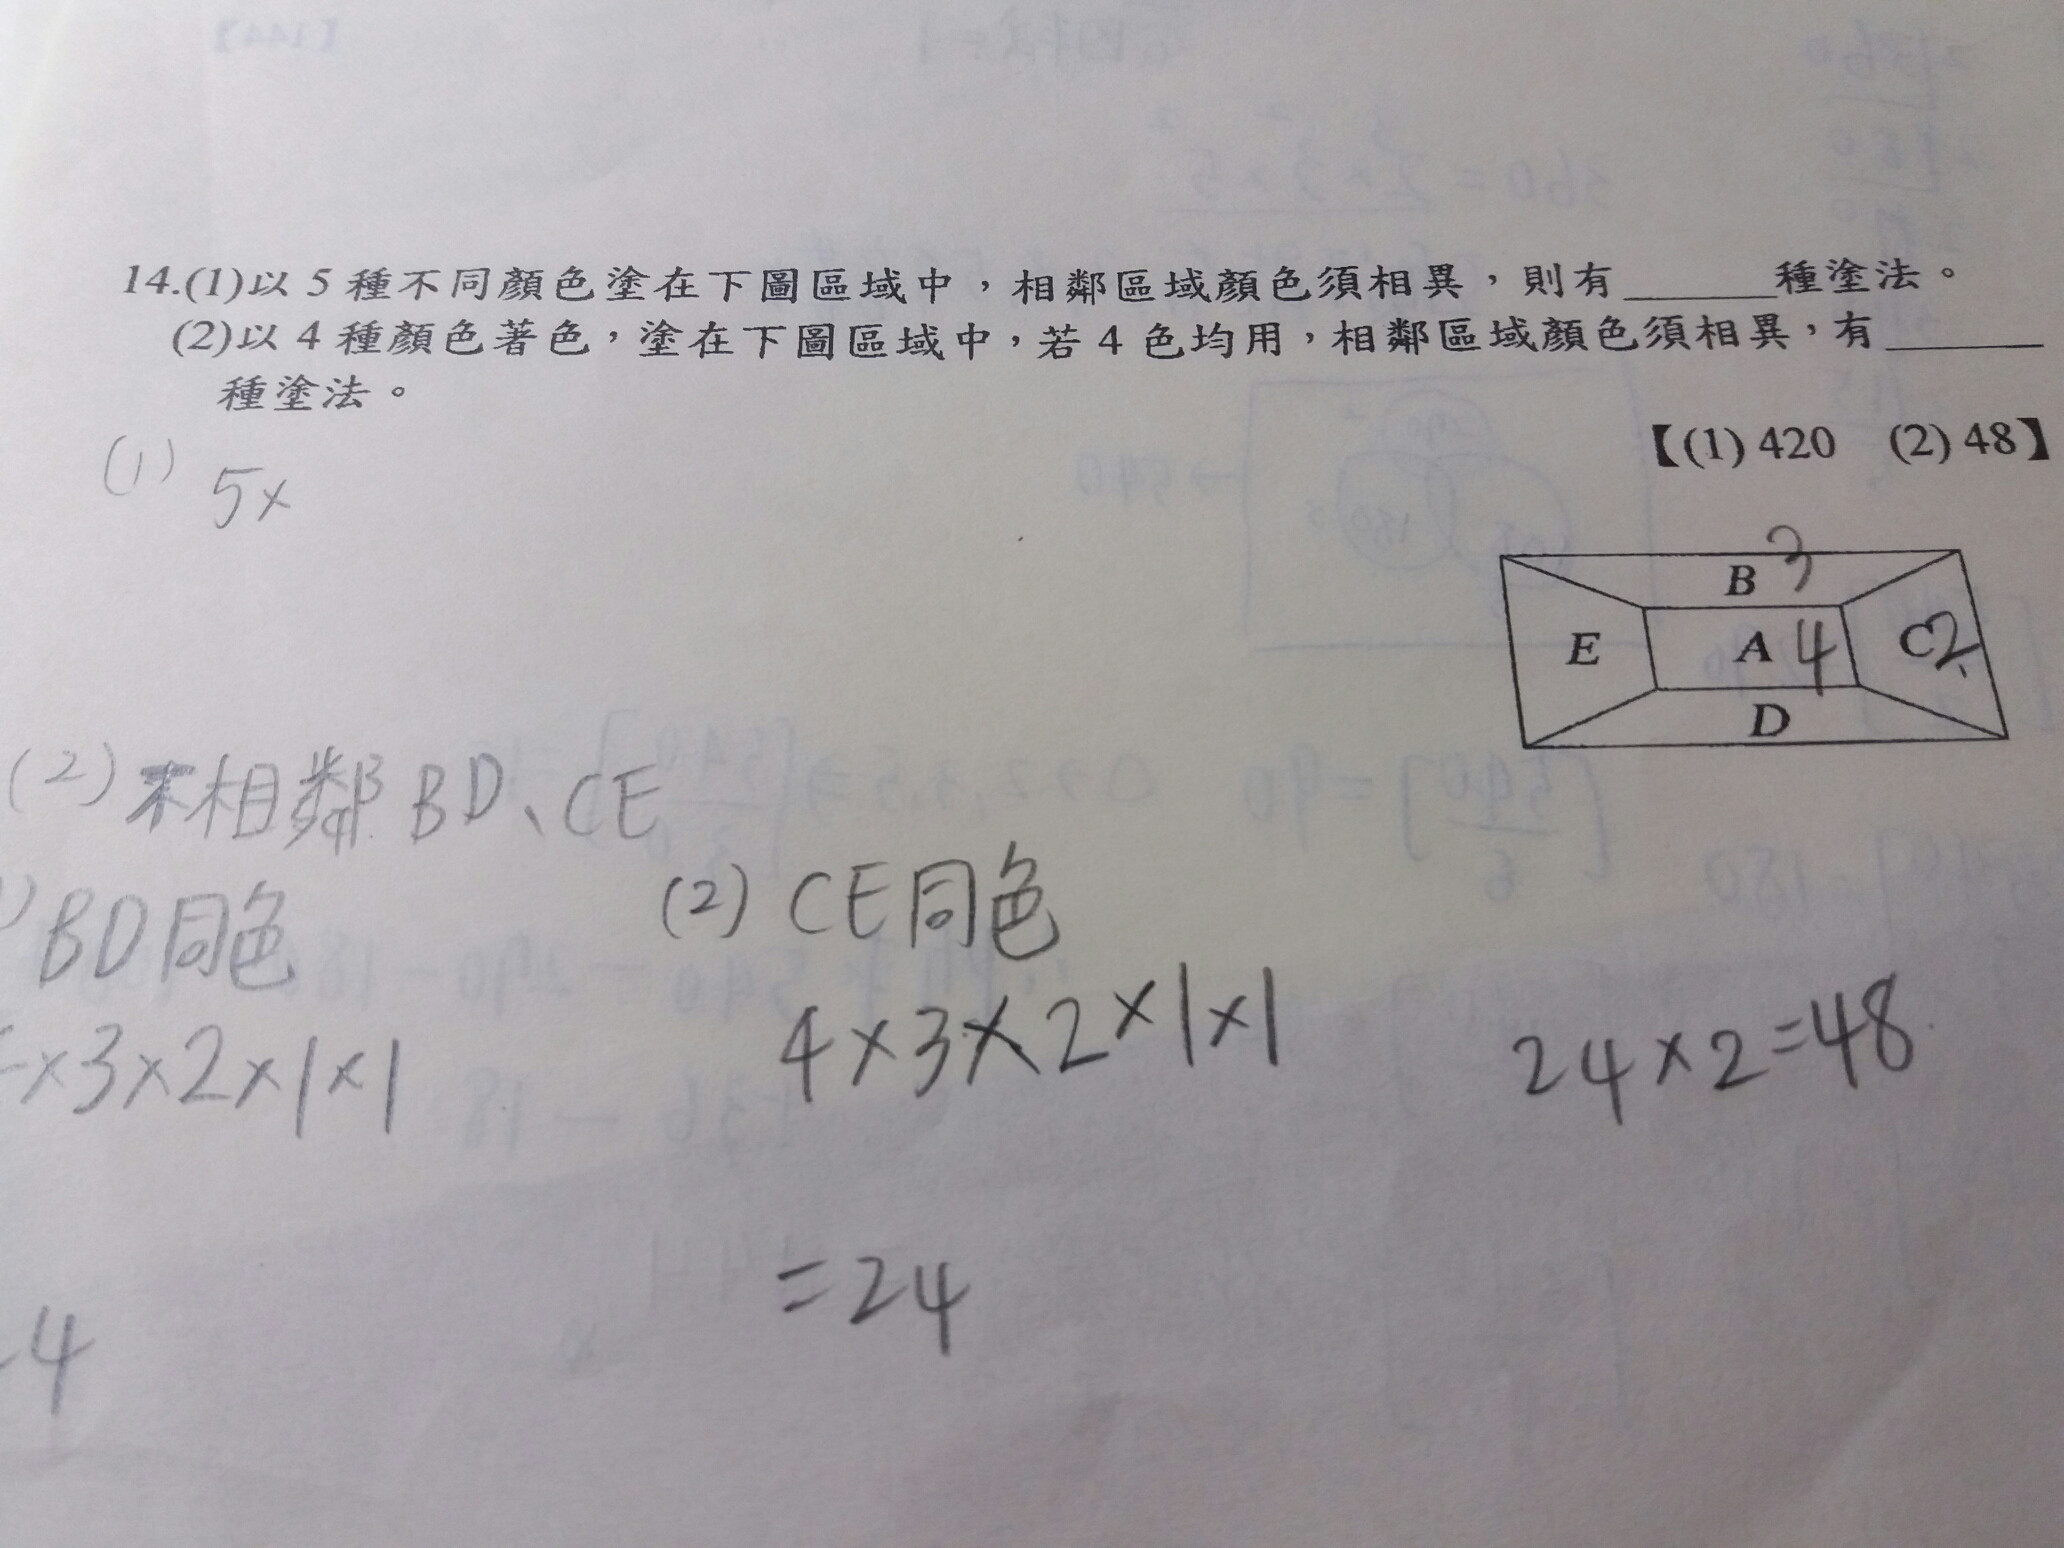 14.(1)以 5 種不同顏色塗在下圖區域中，相鄰區域顏色須相異，則有______種塗法。
(2)以 4 種顏色著色，塗在下圖區域中，若 4 色均用，相鄰區域顏色須相異，有______
種塗法。
【(1) 420 (2) 48】
(1) 5×
B 3
E A 4 C 2
D
(2) 不相鄰 BD、CE
BD同色
(2) CE同色
×3×2×1×1
4×3×2×1×1
24×2=48
=24
4